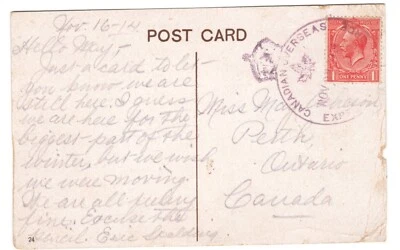 Nov. 16-14
Hello May,
Just a card to let
you know we are
still here. I guess
we are here for the
biggest part of the
winter, but we wish
we were moving
We are all feeling
fine. Excuse the
pencil. Eric
POST CARD
CANADIAN OVERSEAS
NOV
EXP
ONE PENNY
Miss
Perth
Ontario
Canada
24